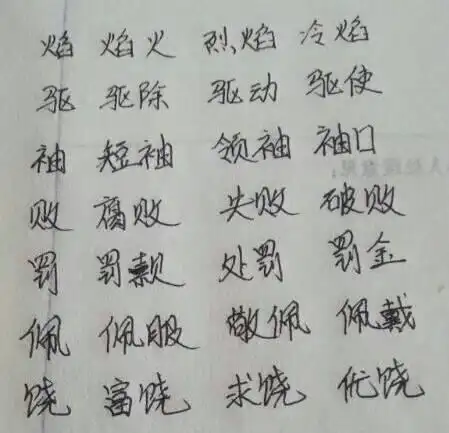 焰 焰火 烈焰 冷焰
驱 驱除 驱动 驱使
袖 短袖 领袖 袖口
败 腐败 失败 破败
罚 罚款 处罚 罚金
佩 佩服 敬佩 佩戴
饶 富饶 求饶 优饶